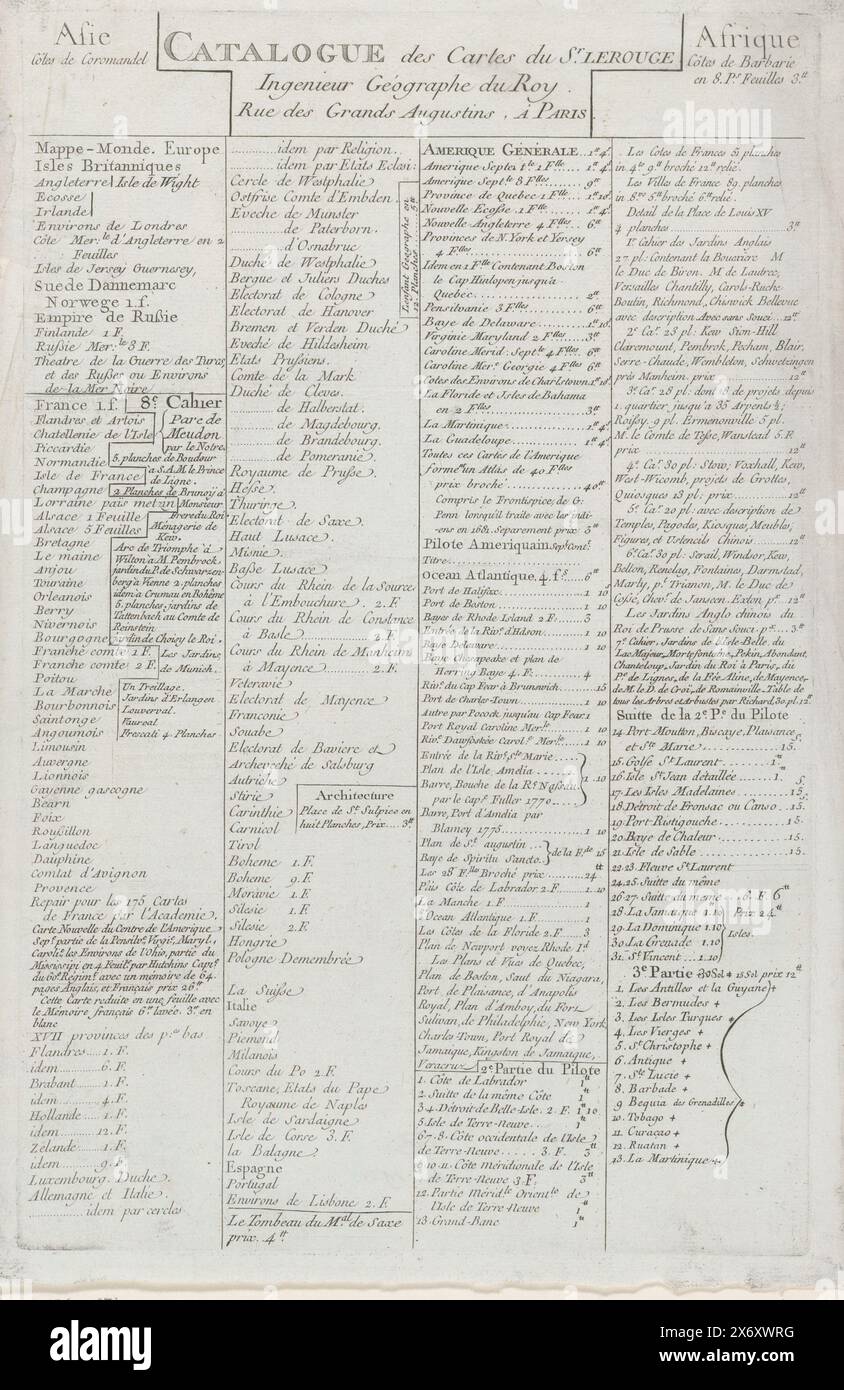 Asie
Côtes de Coromandel
CATALOGUE des Cartes du Sr. LEROUGE
Ingenieur Géographe du Roy.
Rue des Grands Augustins, à PARIS.
Afrique
Côtes de Barbarie
en 8. Pes Feuilles 3.tt
Mappe-Monde. Europe
Isles Britanniques
Angleterre Isle de Wight
Ecosse
Irlande
Environs de Londres
Côte Mer.le d'Angleterre en 2
Feuilles
Isles de Jersey Guernesey,
Suede Dannemarc
Norwege 1.f.
Empire de Rußie
Finlande 1 F.
Rußie Mer.le 3 F.
Theatre de la Guerre des Turcs
et des Rußes ou Environs
de la Mer Noire
France 1.f.
Flandres et Artois
Chatellenie de l'Isle
Piccardie
Normandie
Isle de France
Champagne
Lorraine païs metzin
Alsace 1 Feuille
Alsace 5 Feuilles
Bretagne
Le maine
Anjou
Touraine
Orleanois
Berry
Nivernois
Bourgogne
Franche comté 1 F.
Franche comté 2 F.
Poitou
La Marche
Bourbonnois
Saintonge
Angoumois
Limousin
Auvergne
Lionnois
Guyenne gascogne
Bearn
Foix
Roußillon
Languedoc
Dauphine
Comtat d'Avignon
Provence
Repair pour les 175 Cartes
de France par l'Academie.
Carte Nouvelle du Centre de l'Amerique
Sep.e partie de la Pensilv.e Virgi.e Maryl.
Caroli.e les Environs de l'Ohio, partie du
Mississipi en 4 Feuil.s par Hutchins Cap.e
du 60.e Régim.t avec un mémoire de 64.
pages Anglais, et Français prix 26.tt
Cette Carte reduite en une feuille avec
le Mémoire français 6.tt lavée. 3.tt en
blanc
XVII provinces des p.s bas
Flandres.....1. F.
idem..........6. F.
Brabant.....1. F.
idem..........4. F.
Hollande...1. F.
idem.........12. F.
Zélande.....1. F.
idem..........9. F.
Luxembourg. Duche.
Allemagne et Italie.
..........idem par cercles
8.e Cahier
Parc de
Meudon
par le Notre
5. planches de Boudour
à S.A.M. le Prince
de Ligne.
2 Planches de Brunoÿ à
Monsieur
Frere du Roi
Ménagerie de
Kew.
Arc de Triomphe à
Wilton à M. Pembrock.
jardin du P. de Schwarzen-
berg à Vienne 2. planches
idem à Crumau en Bohême
5. planches. jardins de
Tattenbach au Comte de
Reinstein
jardin de Choisy le Roi.
Les Jardins
de Munich.
Un Treillage.
Jardins d'Erlangen
Louverval.
Faureal
Frescati 4. Planches
..........idem par Religion.
..........idem par Etats Eclesi:
Cercle de Westphalie
Ostfrise Comté d'Embden
Eveche de Munster
..........de Paterborn.
..........d'Osnabruc
Duché de Westphalie
Bergue et Juliers Duches
Electorat de Cologne
Electorat de Hanover
Bremen et Verden Duché
Eveché de Hildesheim
Etats Prußiens.
Comte de la Mark
Duché de Cleves.
..........de Halberstat.
..........de Magdebourg.
..........de Brandebourg.
..........de Pomeranie.
Royaume de Pruße.
Heße.
Thuringe.
Electorat de Saxe.
Haut Lusace.
Misnie.
Baße Lusace
Cours du Rhein de la Source
à l'Embouchure. 2. F.
Cours du Rhein de Constance
à Basle.............2. F.
Cours du Rhein de Manheim
à Mayence.........2. F.
Veteravie
Electorat de Mayence
Franconie
Souabe
Electorat de Baviere et
Archeveché de Salsburg
Autriche
Stirie
Carinthie
Carnicol
Tirol
Boheme 1. F.
Boheme 9. F.
Moravie 1. F.
Silesie 1. F.
Silesie 2. F.
Hongrie
Pologne Demembrée
La Suiße
Italie
Savoye
Piemond
Milanois
Cours du Po 2. F.
Toscane, Etats du Pape
Royaume de Naples
Isle de Sardaigne
Isle de Corse 3. F.
la Balagne
Espagne
Portugal
Environs de Lisbone 2. F.
Le Tombeau du M.al de Saxe
prix. 4.tt
L'enfant Géographe en
12. Planches........5.tt
Architecture
Place de St. Sulpice en
huit Planches, Prix....3.tt
AMERIQUE GÉNÉRALE...1.tt 4.s
Amerique Septe. 1 F.lle...1.tt 4.s
Amerique Sept.le 8 F.lles...9.tt
Province de Quebec 1 F.lle..1.tt 10.s
Nouvelle Ecoße .1 F.lle.....1.tt 4.s
Nouvelle Angleterre 4 F.lles...6.tt
Provinces de N.York et Yersey
4 F.lles..........6.tt
Idem en 1 F.lle Contenant Boston
le Cap Hinlopen jusqu'a
Quebec..........2.tt
Pensilvanie 3 F.lles..........6.tt
Baye de Delaware...........1.tt 10.s
Virginie Maryland 2 F.lles......3.tt
Caroline Merid: Sept.le 4 F.lles...6.tt
Caroline Mer.e Georgie 4 F.lles...6.tt
Cotes des Environs de Charlstown 1.tt 10.s
La Floride et Isles de Bahama
en 2 F.lles..........3.tt
La Martinique..........1.tt 4.s
La Guadeloupe..........1.tt 4.s
Toutes ces Cartes de l'Amerique
forme un Atlas de 40 F.lles
prix broché..........40.tt
Compris le Frontispice de G:
Penn lorsqu'il traite avec les indi-
ens en 1681. Separement prix 3.tt
Pilote Ameriquain Sep.t Cont.t
Titre
Ocean Atlantique. 4. f.s....6.tt
Port de Halifax..........1 10.s
Port de Boston..........1 10
Bayes de Rhode Island 2 F......3
Entrée de la Riv.e d'Hdson......1 10
Baye Delaware..........1 10
Baye Chesapeake et plan de
Herring Baye. 4 F..........4
Riv.e du Cap Fear à Brunswich......15
Port de Charles-Town..........1 10
Autre par Pocock jusqu'au Cap Fear 1
Port Royal Caroline Mer.le....1 10
Riv.e Dawfoskée Carol.e Mer.le....1 10
Entrée de la Riv.e St.e Marie
Plan de l'Isle Amelia
Barre, Bouche de la R.e Naßau
par le Cap.e Fuller 1770
1 10
Barre, Port d'Amelia par
Blamey 1775..........1 10
Plan de St. augustin
Baye de Spiritu Sancto
de la F.de 15
Les 28 F.lles Broché prix......24.tt
Païs Côte de Labrador 2 F...1 10
La Manche 1 F..........1
l'Ocean Atlantique 1 F..........1
Les Côtes de la Floride 2 F......3
Plan de Newport voyez Rhode I.d
Les Plans et Vûes de Quebec,
Plan de Boston, Saut du Niagara,
Port, de Plaisance, d'Anapolis
Royal, Plan d'Amboy, du Fort
Sulivan, de Philadelphie, New York
Charles-Town, Port Royal de
Jamaïque, Kingston de Jamaïque,
Veracruz
2.e Partie du Pilote
1. Côte de Labrador 1.tt
2. Suitte de la même Côte 1.tt
3.4. Détroit de Belle-Isle. 2. F. 1.tt 10
5. Isle de Terre-Neuve......1.tt
6.7.8. Côte occidentale de l'Isle
de Terre-Neuve......3. F. 3.tt
9.10.11. Côte méridionale de l'Isle
de Terre-Neuve 3.F. 3.tt
12. Partie Mérid.le Orient.le de
l'Isle de Terre-Neuve 1.tt
13. Grand-Banc 1.tt
Les Cotes de Frances 51 planches
in 4.to 9.tt broché 12.tt relié.
Les Villes de France 89. planches
in 8.vo 5.tt broché 6.tt relié.
Detail de la Place de Louis XV
4 planches 3.tt
1.er Cahier des Jardins Anglais
27. pl: Contenant la Bouexiere M
le Duc de Biron. M de Lautrec,
Versailles Chantilly, Carols-Ruche
Boutin, Richmond, Chiswick Bellevue
avec description Avec sans Souci...12.tt
2.e Ca. 23 pl: Kew Sion-Hill
Claremount, Pembrok, Pecham, Blair,
Serre-Chaude, Wembleton, Schwetzingen
près Manheim. prix..........12.tt
3.e Ca. 28 pl. dont 18 de projets depuis
1. quartier jusqu'à 35 Arpents ½;
Roißy. 9 pl. Ermenonville 5 pl.
M. le Comte de Teße, Wanstead 5. F.
prix..........12.tt
4.e Ca. 30 pl: Stow, Voxhall, Kew,
West-Wicomb, projets de Grottes,
Quiosques 13 pl: prix..........12.tt
5.e Ca. 20 pl: avec description de
Temples, Pagodes, Kiosque, Meubles,
Figures, et Ustencils Chinois......12.tt
6.e Ca. 30 pl: Serail, Windsor, Kew,
Bellon, Renelag, Fontaines, Darmstad,
Marly, p.t Trianon, M. le Duc de
Coßé, Chev.r de Janseen. Exton p.x 12.tt
Les Jardins Anglo chinois du
Roi de Prusse de Sans Souci p.x...3.tt
7.e Cahier. Jardins de l'Isle-Belle du
Lac Majeur, Mortefontaine, Pekin, Abondant,
Chanteloup, Jardin du Roi à Paris, du
P.e de Lignes, de la Fée Aline, de Mayence,
de M. le D. de Croï, de Romainville. Table de
tous les Arbres et Arbustes par Richard. 30 pl. 12.tt
Suitte de la 2.e P.e du Pilote
14. Port Moutton, Biscaye, Plaisance
et St.e Marie..........15.s
15. Golfe St. Laurent..........1.tt
16. Isle St. Jean détaillée......1.
17. Les Isles Madelaines......15.s
18. Détroit de Fronsac ou Canso..15.
19. Port-Ristigouche..........15.
20. Baye de Chaleur..........15.
21. Isle de Sable..........15.
22.23. Fleuve St. Laurent
24.25. Suitte du même
26.27. Suitte du même......6. F. 6.tt
28. La Jamaïque 1.10
29. La Dominique 1.10
30. La Grenade 1.10
31. St. Vincent...1.10
Prix 24.tt
Isles.
3.e Partie 30 Sol + 15 Sol prix 12.tt
1. Les Antilles et la Guyane +
2. Les Bermudes +
3. Les Isles Turques +
4. Les Vierges +
5. St. Christophe +
6. Antique +
7. St.e Lucie +
8. Barbade +
9 Bequia des Grenadilles +
10. Tobago +
11. Curaçao +
12. Ruatan +
13. La Martinique +
alamy
Image ID: 2X6XWRG
www.alamy.com